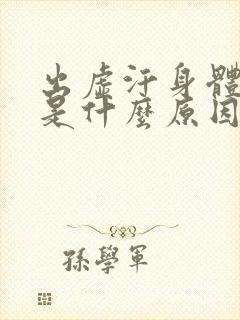 出虛汗身體
是什麼原因
孫學軍